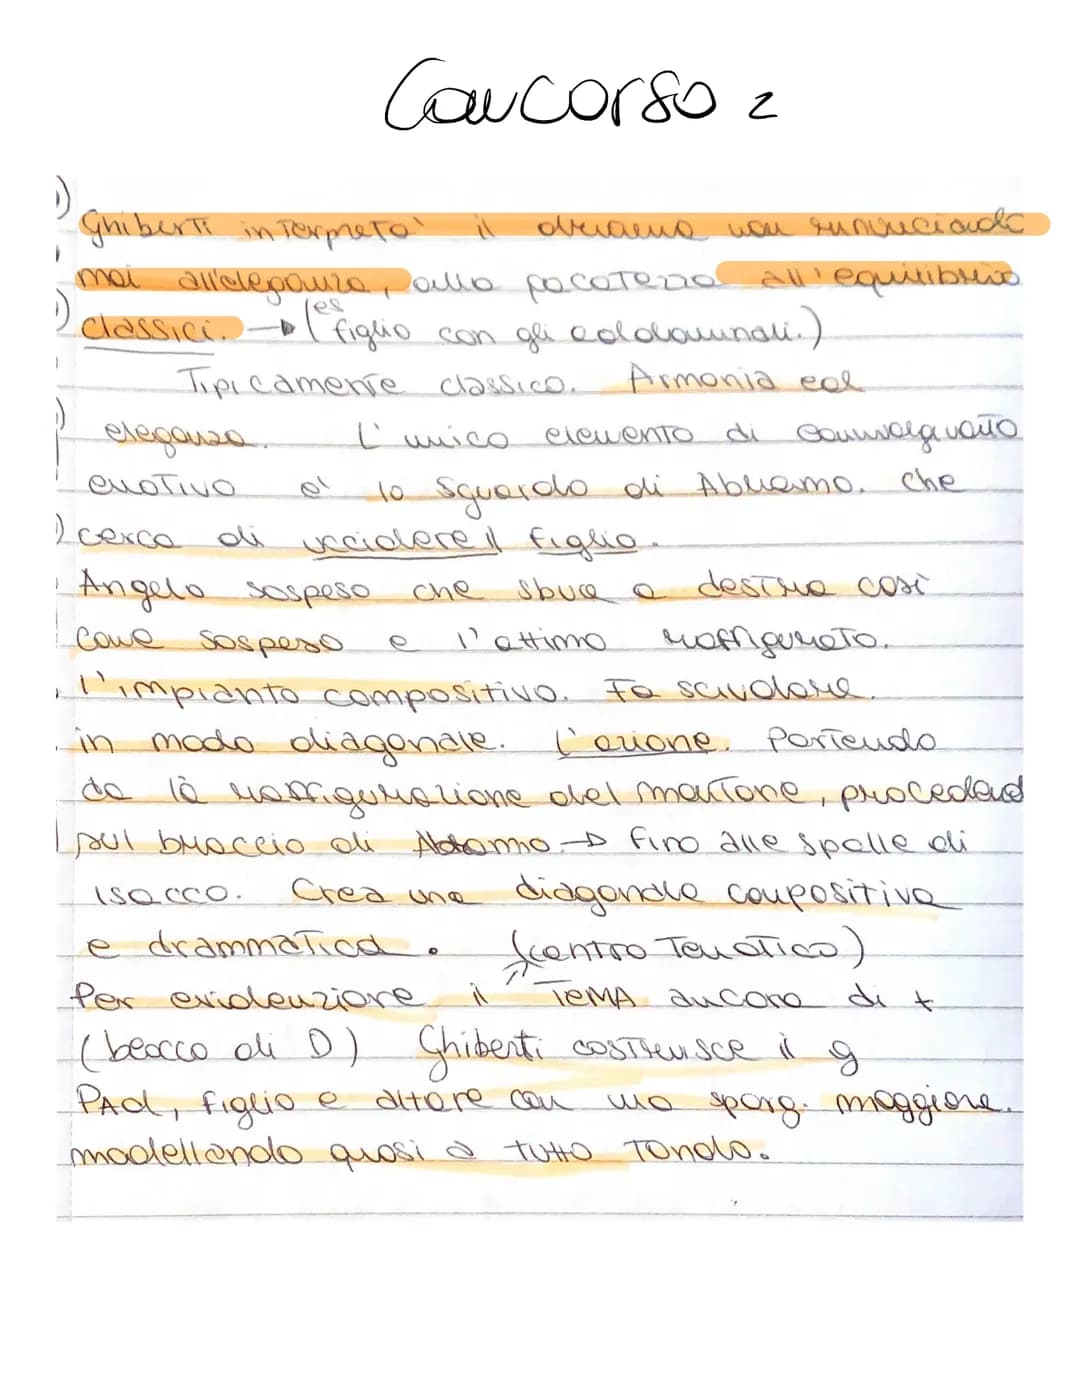 Concorso 2
Ghiberti interpreta' il dramma non rinunciando
mai all'eleganza, alla pacatezza all'equilibrio
classici. → (es figlio con gli addominali.)
Tipicamente classico. Armonia ed
eleganza. L'unico elemento di
emotivo e' lo sguardo di Abramo. Che
cerca di uccidere il figlio.
Angelo sospeso che sbuca a destra così
come sospeso e l'attimo raffigurato.
l'impianto compositivo. Fa scivolare
in modo diagonale. l'azione. Partendo
da là raffigurazione del montone, procedend
sul braccio di → fino alle spalle di
Isacco. Crea una diagonale compositiva
e drammatica. (centro Tematico)
Per evidenziare il TEMA ancora di +
(beocco di D) Ghiberti costruisce il g
PAd, figlio e altare con una sporg. maggiore.
modellando quasi a tutto Tondo.